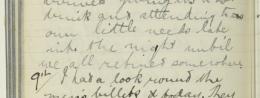 drink and attending to
our little needs late
into the night until
we all retired somewhere
9th I had a look round the
men's billets today. They